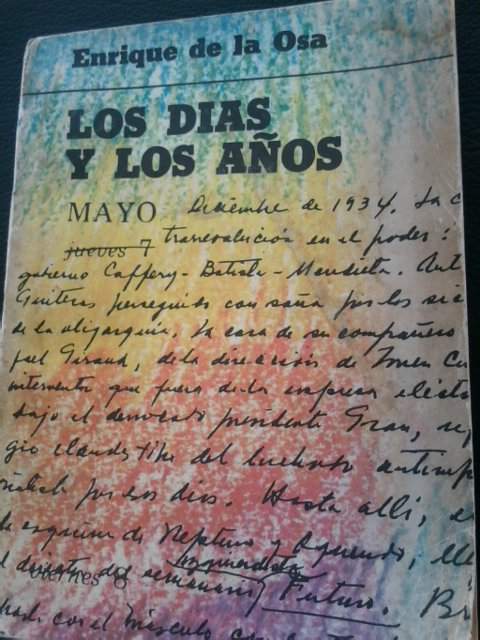 Enrique de la Osa
LOS DIAS
Y LOS AÑOS
MAYO Diciembre de 1934. La c
jueves 7 trarrevolución en el poder:
gobierno Caffery-Batista-Mendieta. Ant
Guiteras perseguido con saña por los sic
de la oligarquía. La casa de su compañero
fiel Giraud, de la dirección de Joven Cu
interventor que fuera de la empresa eléctr
bajo el derrocado presidente Grau, ref
gio clandestino del luchador antimp
rialista por esos días. Hasta allí, e
de esquina de Neptuno y Oquendo, lle
el del semanario Futuro. Br
viernes 8